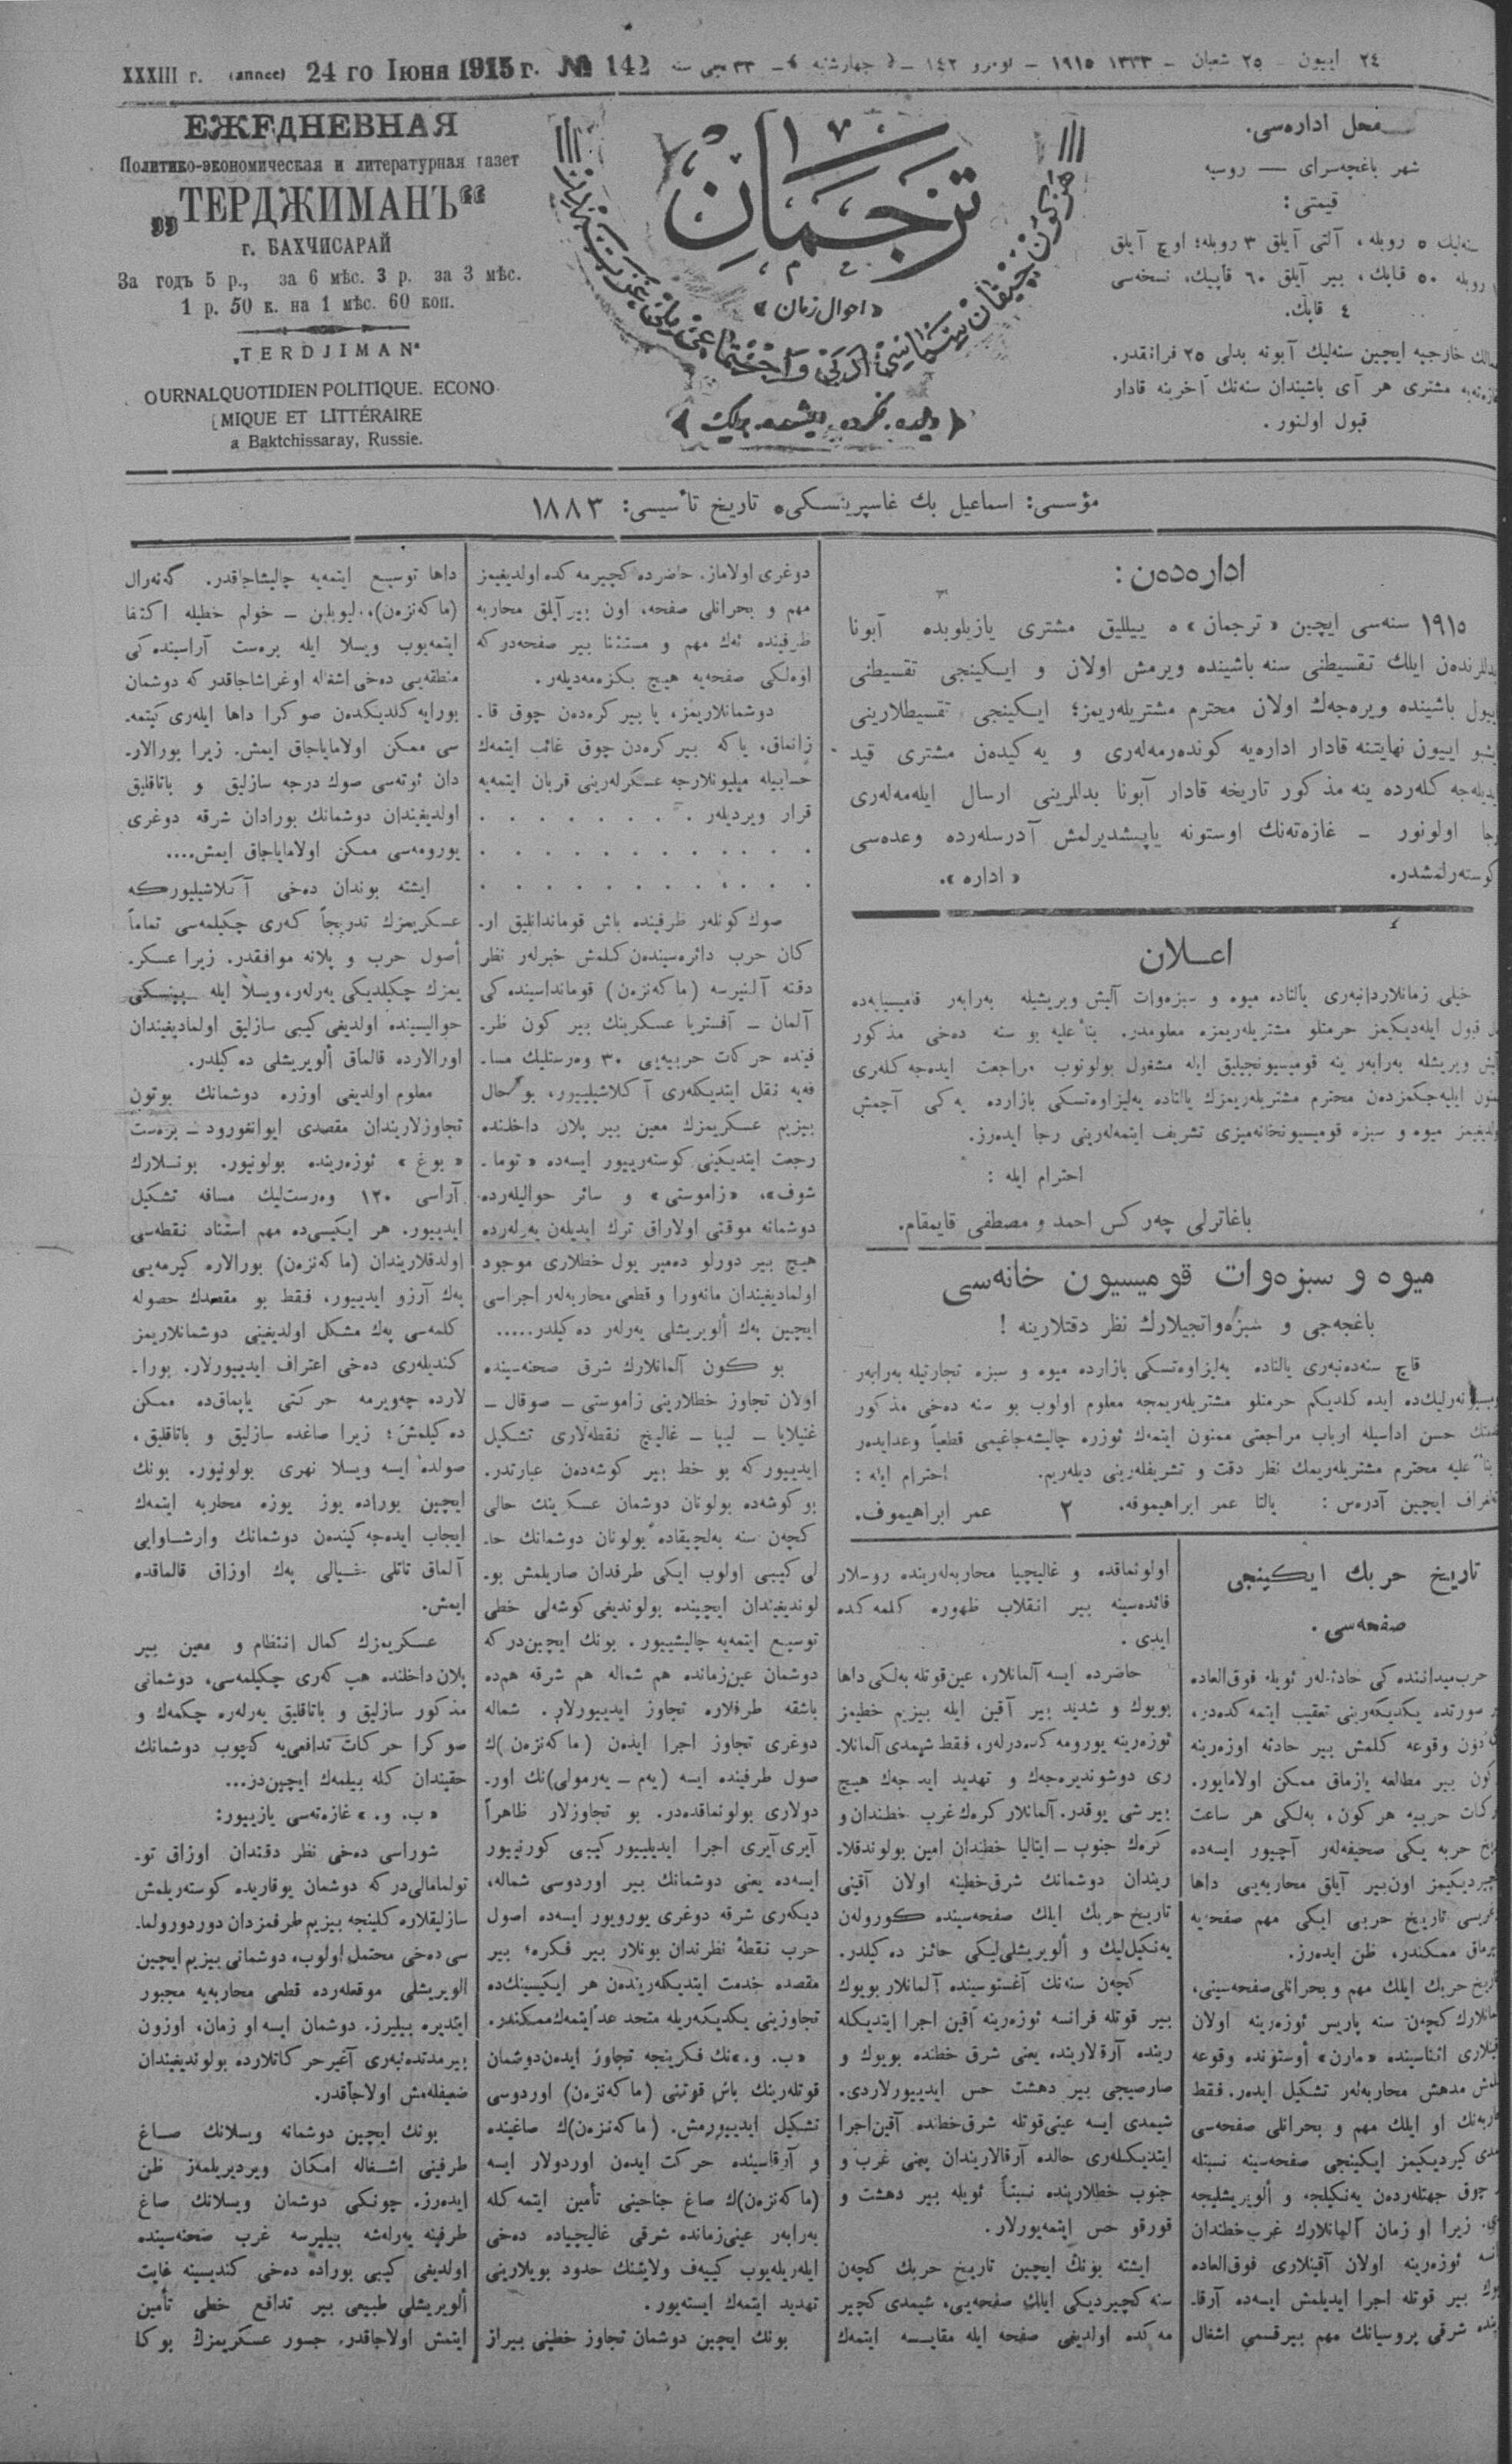 XXXIII г. (annee) 24 го Іюня 1915 г. № 142
٢٤ اییون - ٢٥ شعبان - ١٣٣٣ ١٩١٥ - نومرو ١٤٢ - چهارشنبه - ٣٣ نجی سنه
ЕЖЕДНЕВНАЯ
Политико-экономическая и литературная газет
„ТЕРДЖИМАНЪ“
г. БАХЧИСАРАЙ
За годъ 5 р., за 6 мѣс. 3 р. за 3 мѣс.
1 р. 50 к. на 1 мѣс. 60 коп.
„TERDJIMAN“
OURNALQUOTIDIEN POLITIQUE. ECONO
MIQUE ET LITTÉRAIRE
a Baktchissaray, Russie.
ترجمان
«احوال زمان»
دیلده، فكرده، ایشده، برلك
محل اداره‌سی.
شهر باغچه‌سرای — روسیه
قیمتی:
سنه‌لیك ٥ روبله، آلتی آیلق ٣ روبله؛ اوچ آیلق
روبله ٥٠ قاپك، بیر آیلق ٦٠ قاپیك، نسخه‌سی
٤ قاپك.
خارجیه ایچین سنه‌لیك آبونه بدلی ٢٥ فرانقدر.
مشتری هر آی باشیندان سنه‌نك آخرینه قادار
قبول اولنور.
مؤسسی: اسماعیل بك غاسپرینسكی تاریخ تأسیسی: ١٨٨٣
اداره‌دن:
١٩١٥ سنه‌سی ایچین «ترجمان» ه ییللیق مشتری یازیلوبده آبونا
بدللرندن ایلك تقسیطنی سنه باشینده ویرمش اولان و ایكینجی تقسیطنی
باشینده ویره‌جه‌ك اولان محترم مشتریله‌ریمز؛ ایكینجی تقسیطلارینی
اییون نهایتنه قادار اداره‌یه كونده‌رمه‌له‌ری و یه‌كیدن مشتری قید
ینه مذكور تاریخه قادار آبونا بدللرینی ارسال ایله‌مه‌له‌ری
رجا اولونور - غازه‌ته‌نك اوستونه یاپیشدیرلمش آدرسله‌رده وعده‌سی
كوسته‌رلمشدر. «اداره».
اعلان
خیلی زمانلاردانبه‌ری یالتاده میوه و سبزه‌وات آلیش ویریشیله به‌رابه‌ر
قبول ایله‌دیكیمز حرمتلو مشتریله‌ریمزه معلومدر. بناً علیه بو سنه ده‌خی مذكور
ویریشله به‌رابه‌ر ینه قومیسیونجیلیق ایله مشغول بولونوب مراجعت ایده‌جه‌كله‌ری
محترم مشتریله‌ریمزك یالتاده یه‌لیزاوه‌تسكی بازارده یه‌كی آچمش
میوه و سبزه قومیسیونخانه‌میزی تشریف ایتمه‌له‌رینی رجا ایده‌رز.
احترام ایله:
باغاترلی چه‌ركس احمد و مصطفی قایمقام.
میوه و سبزه‌وات قومیسیون خانه‌سی
باغچه‌جی و سبزه‌واتجیلارك نظر دقتلارینه!
قاچ سنه‌ده‌نبه‌ری یالتاده یه‌لیزاوه‌تسكی بازارده میوه و سبزه تجارتیله به‌رابه‌ر
ایده كلدیكم حرمتلو مشتریله‌ریمجه معلوم اولوب بو سنه ده‌خی مذكور
حسن اداسیله ارباب مراجعتی ممنون ایتمه‌ك ئوزره چالیشه‌جاغیمی قطعیاً وعدایده‌ر
علیه محترم مشتریله‌ریمك نظر دقت و تشریفله‌رینی دیله‌ریم. احترام ایله:
ایچین آدره‌س: یالتا عمر ابراهیموفه. ٢ عمر ابراهیموف.
تاریخ حربك ایكینجی
صفحه‌سی.
حرب میداننده كی حادثه‌لر ئویله فوق‌العاده
سورتده یكدیكه‌رینی تعقیب ایتمه كده‌در،
دون وقوعه كلمش بیر حادثه اوزه‌رینه
بیر مطالعه یازماق ممكن اولامایور.
حربیه هر كون، به‌لكی هر ساعت
حربه یكی صحیفه‌لر آچیور ایسه‌ده
اون‌بیر آیلق محاربه‌یی داها
تاریخ حربی ایكی مهم صفحه‌یه
ممكندر، ظن ایده‌رز.
حربك ایلك مهم و بحرانلی صفحه‌سینی،
كچه‌ن سنه پاریس ئوزه‌رینه اولان
اثناسینده «مارن» اوستونده وقوعه
مدهش محاربه‌لر تشكیل ایده‌ر. فقط
او ایلك مهم و بحرانلی صفحه‌سی
كیردیكیمز ایكینجی صفحه‌سینه نسبتله
چوق جهتله‌ردن یه‌نكیلجه و ألویریشلیجه
زیرا او زمان آلمانلارك غرب خطندان
ئوزه‌رینه اولان آقینلاری فوق‌العاده
بیر قوتله اجرا ایدیلمش ایسه‌ده آرقا-
شرقی پروسیانك مهم بیرقسمی اشغال
اولونماقده و غالیچیا محاربه‌له‌رینده روسلار
فائده‌سینه بیر انقلاب ظهوره كلمه‌كده
ایدی.
حاضرده ایسه آلمانلار، عین‌قوتله به‌لكی داها
بویوك و شدید بیر آقین ایله بیزیم خطیمز
ئوزه‌رینه یورومه كده‌درلر، فقط شیمدی آلمانلا-
ری دوشوندیره‌جه‌ك و تهدید ایده‌جه‌ك هیچ
بیر شی یوقدر. آلمانلار كره‌ك غرب خطندان و
كره‌ك جنوب - ایتالیا خطندان امین بولوندقلا-
ریندان دوشمانك شرق خطینه اولان آقینی
تاریخ حربك ایلك صفحه‌سینده كورولن
یه‌نكیل‌لیك و ألویریشلی‌لیكی حائز ده كیلدر.
كچه‌ن سنه‌نك آغستوسینده آلمانلار بویوك
بیر قوتله فرانسه ئوزه‌رینه آقین اجرا ایتدیكله
رینده آرقالارینده یعنی شرق خطنده بویوك و
صارصیجی بیر دهشت حس ایدییورلاردی.
شیمدی ایسه عینی‌قوتله شرق خطنده آقین‌اجرا
ایتدیكله‌ری حالده آرقالاریندان یعنی غرب و
جنوب خطلارینده نسبتاً ئویله بیر دهشت و
قورقو حس ایتمه‌یورلار.
ایشته بونك ایچین تاریخ حربك كچه‌ن
سنه كچیردیكی ایلك صفحه‌یی، شیمدی كچیر
مه‌كده اولدیغی صفحه ایله مقایسه ایتمه‌ك
دوغری اولاماز. حاضرده كچیرمه كده اولدیغیمز
مهم و بحرانلی صفحه، اون بیر آیلق محاربه
ظرفینده ئه‌ك مهم و مستثنا بیر صفحه‌در كه
اوه‌لكی صفحه‌یه هیچ بكزه‌مه‌دیله‌ر.
دوشمانلاریمز، یا بیر كره‌ده‌ن چوق قا-
زانماق، یاكه بیر كره‌دن چوق غائب ایتمه‌ك
حسابیله میلیونلارجه عسكرله‌رینی قربان ایتمه‌یه
قرار ویردیله‌ر . . . . . . .
. . . . . . . . . .
. . . . . . . . . .
صوك كونله‌ر ظرفینده باش قوماندانلیق ار-
كان حرب دائره‌سینده‌ن كلمش خبرله‌ر نظر
دقته آلنیرسه (ماكه‌نزه‌ن) قومانداسینده كی
آلمان - آفستریا عسكرینك بیر كون ظر-
فینده حركات حربیه‌یی ٣٠ وه‌رستلیك مسا-
فه‌یه نقل ایتدیكله‌ری آكلاشیلییور، بو حال
بیزیم عسكریمزك معین بیر پلان داخلنده
رجعت ایتدیكینی كوسته‌رییور ایسه‌ده «توما-
شوف»، «زاموستی» و سائر حوالیله‌رده
دوشمانه موقتی اولاراق ترك ایدیله‌ن یه‌رله‌رده
هیچ بیر دورلو ده‌میر یول خطلاری موجود
اولمادیغیندان مانه‌ورا و قطعی محاربه‌له‌ر اجراسی
ایچین په‌ك ألویریشلی یه‌رله‌ر ده كیلدر.....
بو كون آلمانلارك شرق صحنه‌سینده
اولان تجاوز خطلارینی زاموستی - صوقال -
غنیلایا - لیپا - غالیچ نقطه‌لاری تشكیل
ایدییور كه بو خط بیر كوشه‌ده‌ن عبارتدر.
بو كوشه‌ده بولونان دوشمان عسكرینك حالی
كچه‌ن سنه به‌لچیقاده بولونان دوشمانك حا-
لی كیبی اولوب ایكی طرفدان صاریلمش بو-
لوندیغیندان ایچینده بولوندیغی كوشه‌لی خطی
توسیع ایتمه‌یه چالیشییور. بونك ایچین‌در كه
دوشمان عین‌زمانده هم شماله هم شرقه هم‌ده
باشقه طرفلاره تجاوز ایدییورلار. شماله
دوغری تجاوز اجرا ایده‌ن (ماكه‌نزه‌ن)ك
صول طرفینده ایسه (یه‌م - یه‌رمولی)نك اور-
دولاری بولونماقده‌در. بو تجاوزلار ظاهراً
آیری آیری اجرا ایدیلییور كیبی كورنییور
ایسه‌ده یعنی دوشمانك بیر اوردوسی شماله،
دیكه‌ری شرقه دوغری یورویور ایسه‌ده اصول
حرب نقطهٔ نظرندان بونلار بیر فكره، بیر
مقصده خدمت ایتدیكله‌رینده‌ن هر ایكیسینك‌ده
تجاوزینی یكدیكه‌ریله متحد عد ایتمه‌ك‌ممكندر.
«ب. و.»نك فكرینجه تجاوز ایده‌ن دوشمان
قوتله‌رینك باش قوتنی (ماكه‌نزه‌ن) اوردوسی
تشكیل ایدییورمش. (ماكه‌نزه‌ن)ك صاغینده
و آرقاسینده حركت ایده‌ن اوردولار ایسه
(ماكه‌نزه‌ن)ك صاغ جناحینی تأمین ایتمه كله
به‌رابه‌ر عینی‌زمانده شرقی غالیچیاده ده‌خی
ایله‌ریله‌یوب كییه‌ف ولایتنك حدود بویلارینی
تهدید ایتمه‌ك ایسته‌یور.
بونك ایچین دوشمان تجاوز خطینی بیراز
داها توسیع ایتمه‌یه چالیشاجاقدر. گه‌نه‌رال
(ماكه‌نزه‌ن)، لیوبلین - خولم خطیله اكتفا
ایتمه‌یوب ویسلا ایله بره‌ست آراسینده كی
منطقه‌یی ده‌خی اشغاله اوغراشاجاقدر كه دوشمان
بورایه كلدیكده‌ن صوكرا داها ایله‌ری كیتمه-
سی ممكن اولامایاجاق ایمش. زیرا بورالار-
دان ئوته‌سی صوك درجه سازلیق و باتاقلیق
اولدیغیندان دوشمانك بورادان شرقه دوغری
یورومه‌سی ممكن اولامایاجاق ایمش....
ایشته بوندان ده‌خی آكلاشیلیوركه
عسكریمزك تدریجاً كه‌ری چكیلمه‌سی تماماً
أصول حرب و پلانه موافقدر. زیرا عسكر-
یمزك چكیلدیكی یه‌رله‌ر، ویسلا ایله پینسكی
حوالیسینده اولدیغی كیبی سازلیق اولمادیغیندان
اورالارده قالماق ألویریشلی ده كیلدر.
معلوم اولدیغی اوزره دوشمانك بوتون
تجاوزلاریندان مقصدی ایوانغورود - بره‌ست
«بوغ» ئوزه‌رینده بولونیور. بونلارك
آراسی ١٢٠ وه‌رست‌لیك مسافه تشكیل
ایدییور. هر ایكیسی‌ده مهم استناد نقطه‌سی
اولدقلاریندان (ماكه‌نزه‌ن) بورالاره كیرمه‌یی
په‌ك آرزو ایدییور، فقط بو مقصدك حصوله
كلمه‌سی په‌ك مشكل اولدیغینی دوشمانلاریمز
كندیله‌ری ده‌خی اعتراف ایدییورلار. بورا-
لارده چه‌ویرمه حركتی یاپماق‌ده ممكن
ده كیلمش؛ زیرا صاغده سازلیق و باتاقلیق،
صولده ایسه ویسلا نهری بولونیور. بونك
ایچین بوراده یوز یوزه محاربه ایتمه‌ك
ایجاب ایده‌جه كینده‌ن دوشمانك وارشاوایی
آلماق تاتلی خیالی په‌ك اوزاق قالماقده
ایمش.
عسكریمزك كمال انتظام و معین بیر
پلان داخلنده هپ كه‌ری چكیلمه‌سی، دوشمانی
مذكور سازلیق و باتاقلیق یه‌رله‌ره چكمه‌ك و
صوكرا حركات تدافعی‌یه كچوب دوشمانك
حقیندان كله بیلمه‌ك ایچین‌در...
«ب. و.» غازه‌ته‌سی یازییور:
شوراسی ده‌خی نظر دقتدان اوزاق تو-
تولمامالی‌در كه دوشمان یوقاریده كوسته‌ریلمش
سازلیقلاره كلینجه بیزیم طرفمزدان دوردورولما-
سی ده‌خی محتمل اولوب، دوشمانی بیزیم ایچین
الویریشلی موقعله‌رده قطعی محاربه‌یه مجبور
ایتدیره بیلیرز. دوشمان ایسه او زمان، اوزون
بیرمدتده‌نبه‌ری آغیرحركاتلارده بولوندیغیندان
ضعیفله‌مش اولاجاقدر.
بونك ایچین دوشمانه ویسلانك صاغ
طرفینی اشغاله امكان ویردیریلمه‌ز ظن
ایده‌رز. چونكی دوشمان ویسلانك صاغ
طرفینه یه‌رله‌شه بیلیرسه غرب صحنه‌سینده
اولدیغی كیبی بوراده ده‌خی كندیسینه غایت
ألویریشلی طبیعی بیر تدافع خطی تأمین
ایتمش اولاجاقدر. جسور عسكریمزك بوكا